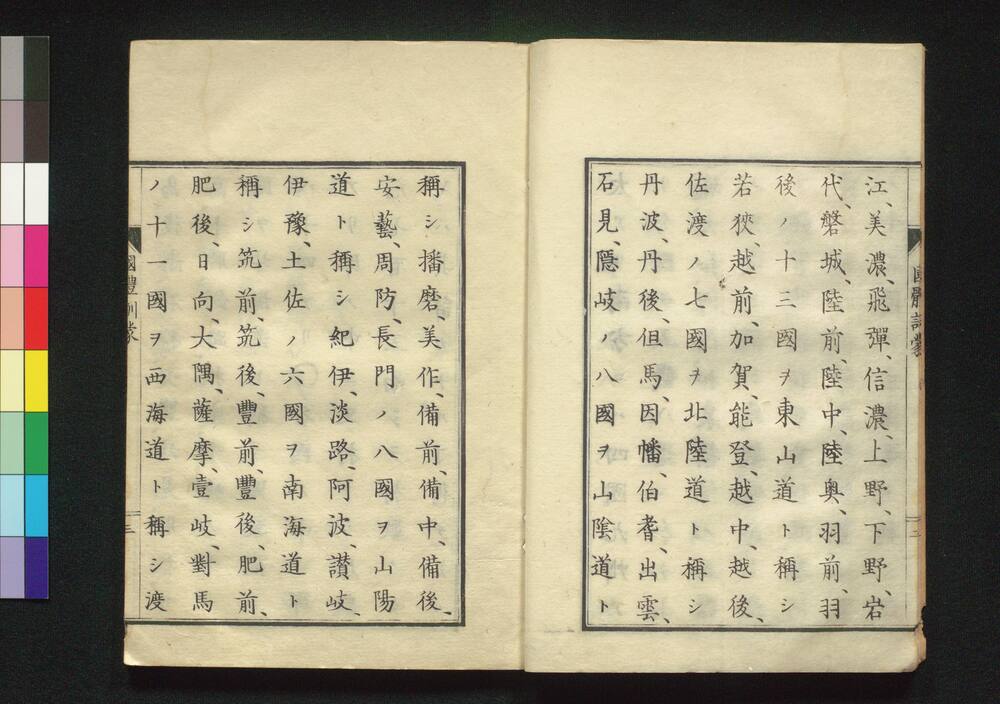 江、美濃、飛彈、信濃、上野、下野、岩
代、磐城、陸前、陸中、陸奥、羽前、羽
後ノ十三國ヲ東山道ト稱シ
若狹、越前、加賀、能登、越中、越後、
佐渡ノ七國ヲ北陸道ト稱シ
丹波、丹後、但馬、因幡、伯耆、出雲、
石見、隠岐ノ八國ヲ山陰道ト
稱シ播磨、美作、備前、備中、備後、
安藝、周防、長門ノ八國ヲ山陽
道ト稱シ紀伊、淡路、阿波、讃岐、
伊豫、土佐ノ六國ヲ南海道ト
稱シ筑前、筑後、豐前、豐後、肥前、
肥後、日向、大隅、薩摩、壹岐、對馬
ノ十一國ヲ西海道ト稱シ渡
國體訓蒙
三